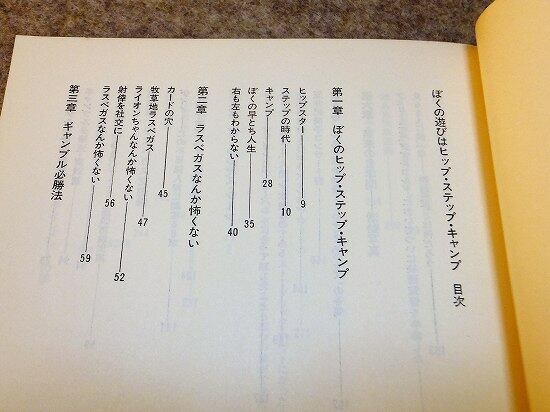 ぼくの遊びはヒップ・ステップ・キャンプ 目次
第一章 ぼくのヒップ・ステップ・キャンプ
ヒップスター 9
ステップの時代 10
キャンプ 28
ぼくの早とち人生 35
右も左もわからない 40
第二章 ラスベガスなんか怖くない
カードの穴 45
牧草地ラスベガス 47
ライオンちゃんなんか怖くない 52
射倖を社交に 56
ラスベガスなんか怖くない 59
第三章 ギャンブル必勝法